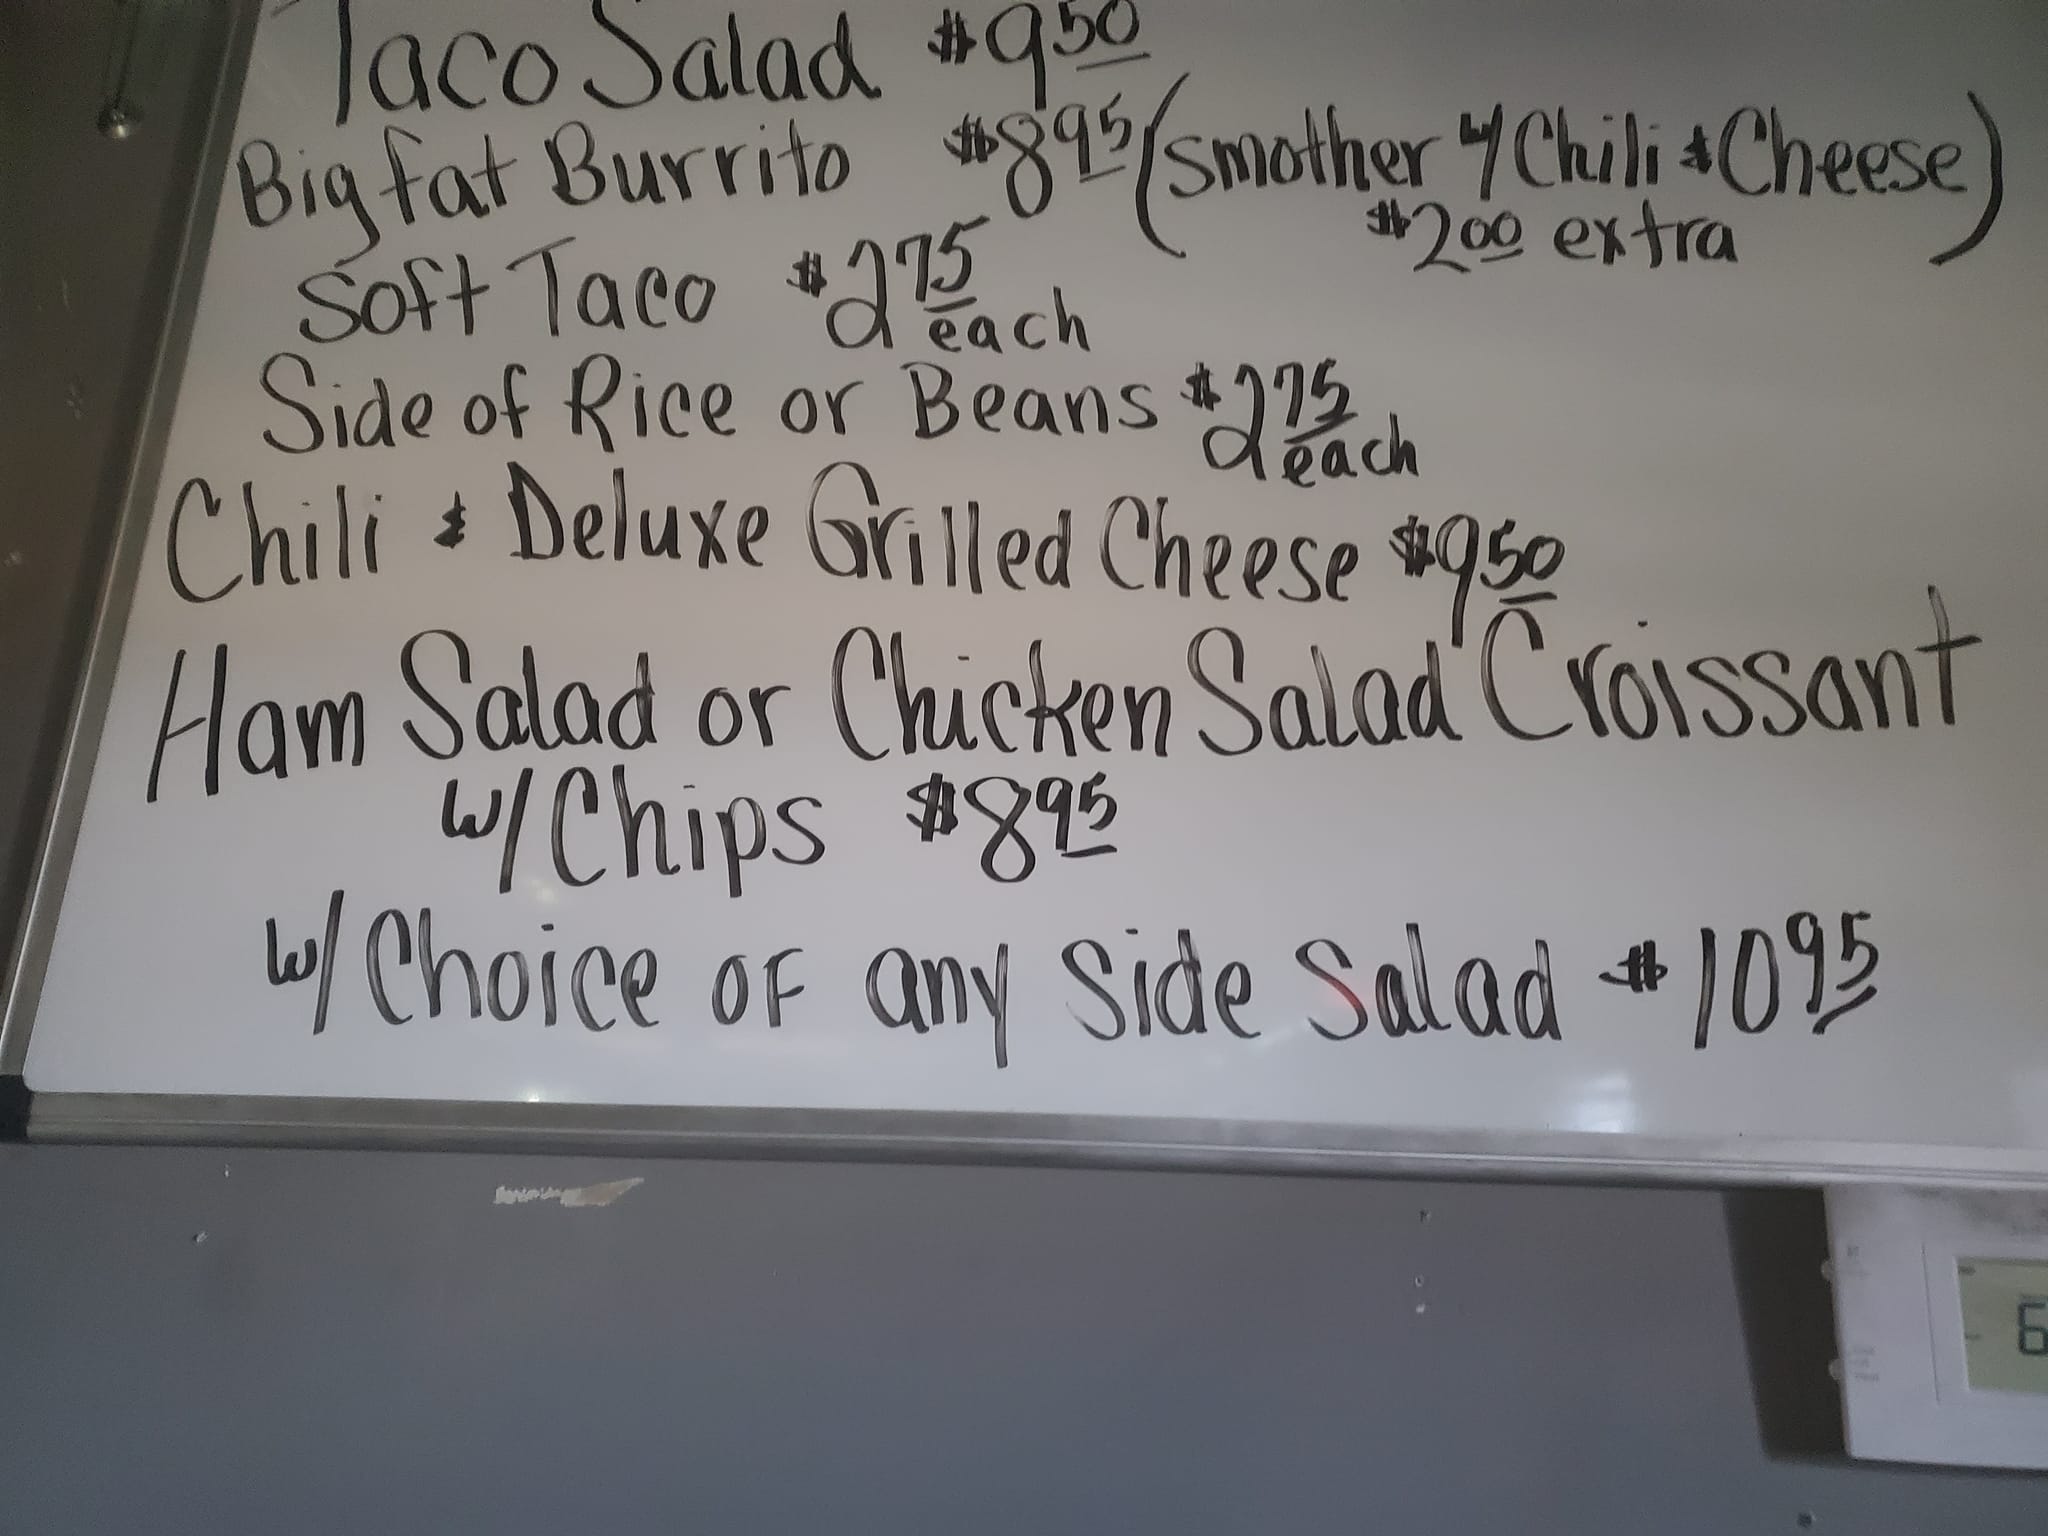 Taco Salad $9.50
Big fat Burrito $8.95 (smother w/ Chili & Cheese)
$2.00 extra
Soft Taco $2.75
each
Side of Rice or Beans $2.75
each
Chili & Deluxe Grilled Cheese $9.50
Ham Salad or Chicken Salad Croissant
w/ Chips $8.95
w/ Choice OF any Side Salad $10.95
6